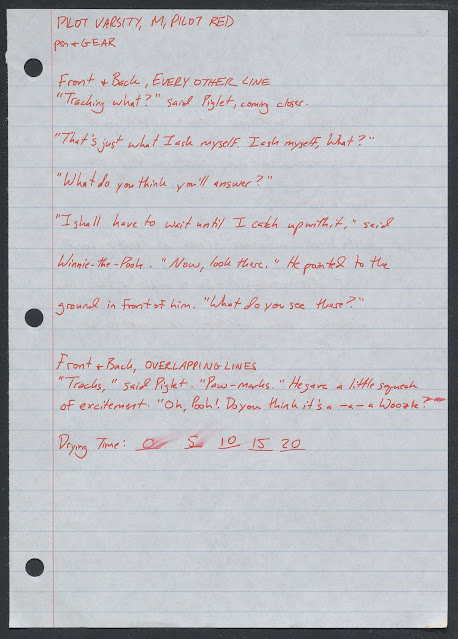 PILOT VARSITY, M, PILOT RED
pen + GEAR
Front + Back, EVERY OTHER LINE
"Tracking what?" said Piglet, coming closer.
"That's just what I ask myself. I ask myself, What?"
"What do you think you'll answer?"
"I shall have to wait until I catch up with it," said
Winnie-the-Pooh. "Now, look there." He pointed to the
ground in front of him. "What do you see there?"
Front + Back, OVERLAPPING LINES
"Tracks," said Piglet. "Paw-marks." He gave a little squeak
of excitement. "Oh, Pooh! Do you think it's a -a- a Woozle?"
Drying Time: 0 5 10 15 20